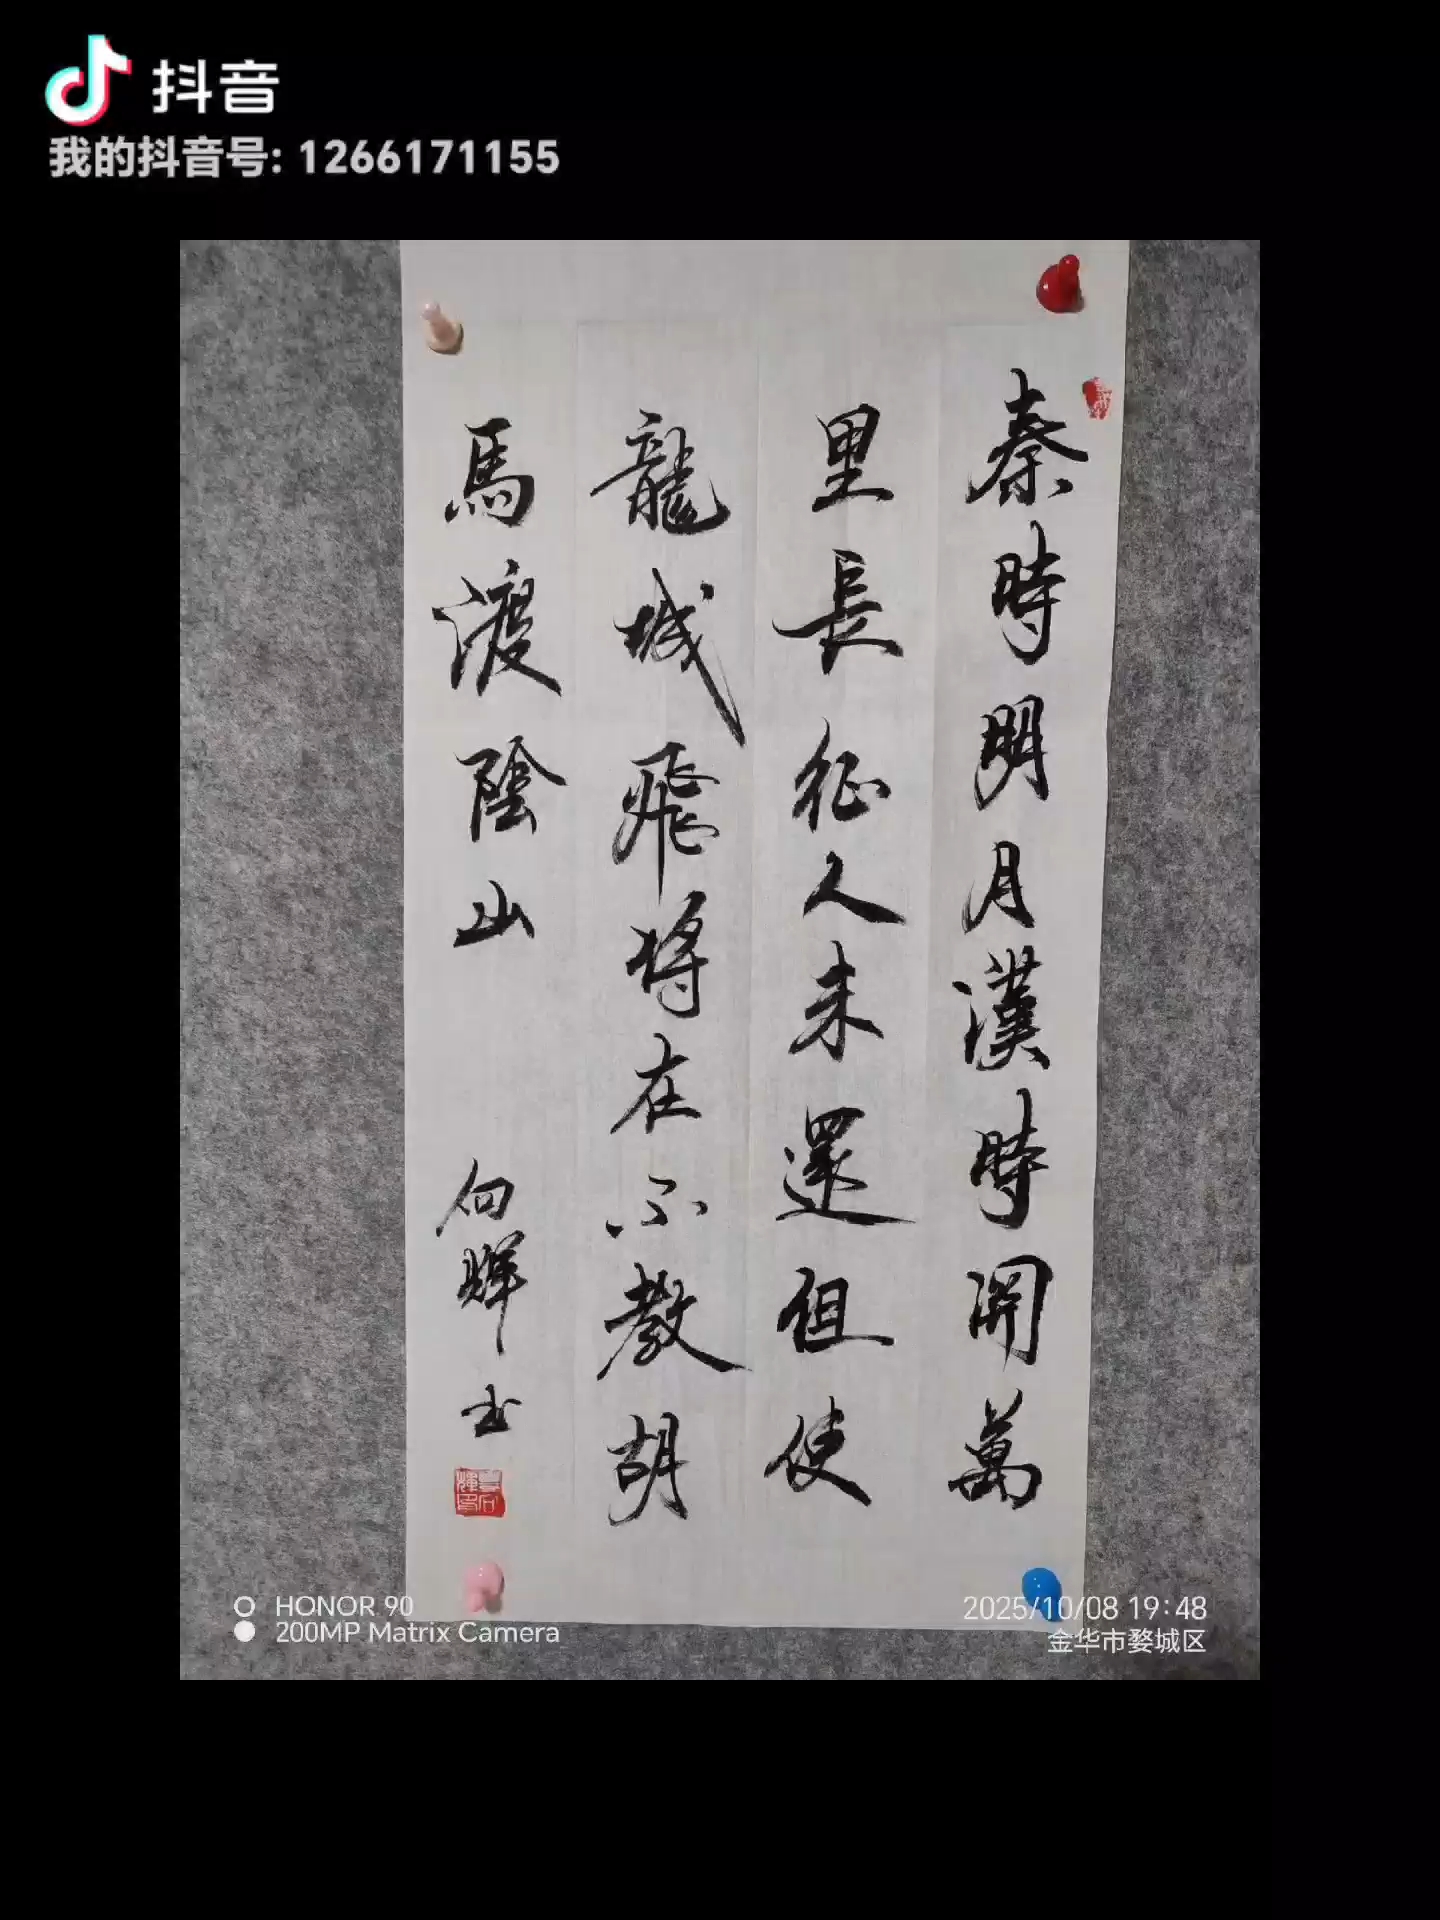 抖音
我的抖音号: 1266171155
秦時明月漢時関萬
里長征人未還但使
龍城飛将在不教胡
馬渡陰山
向輝书
HONOR 90
200MP Matrix Camera
2025/10/08 19:48
金华市婺城区